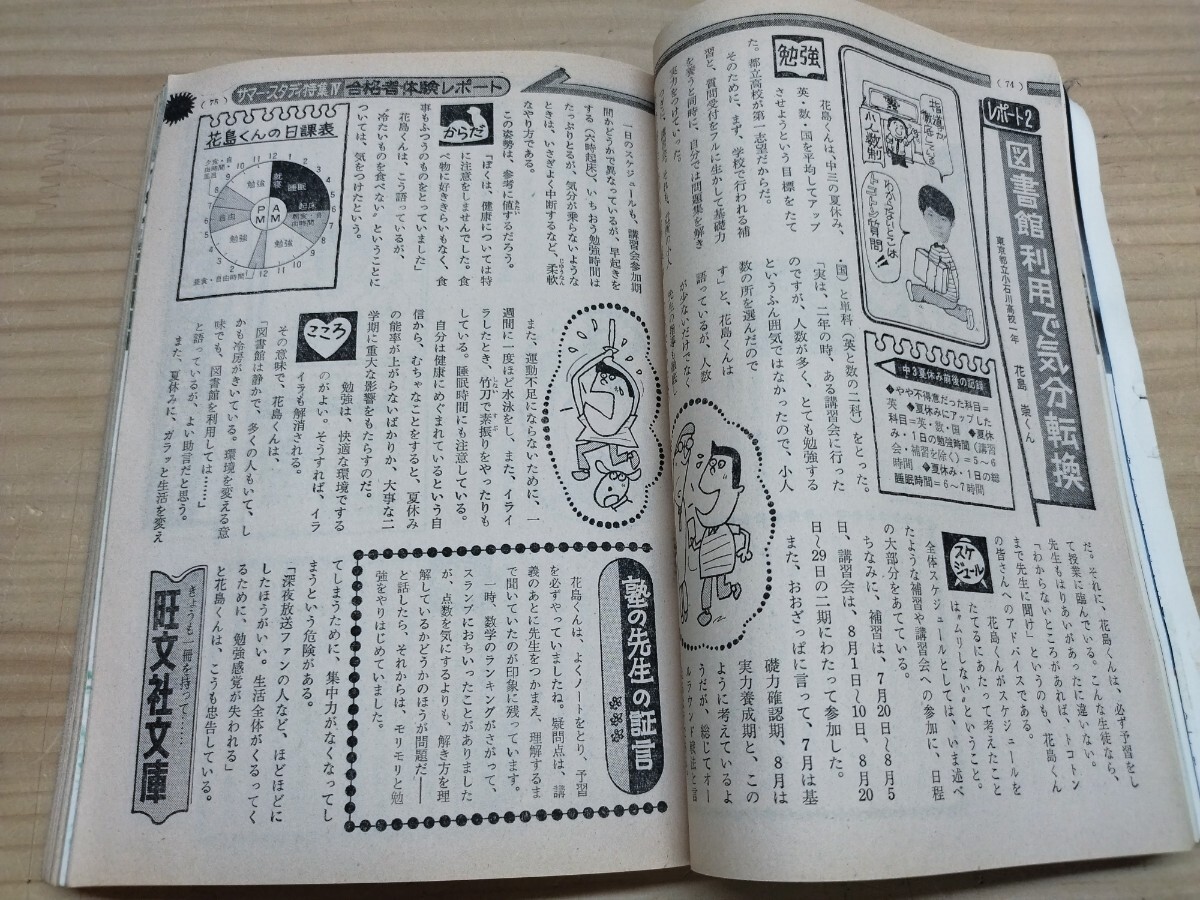 (74)
レポート2
図書館利用で気分転換
東京都立小石川高校一年 花島 崇くん
指導が徹底している
塾
少人数制
わからないとこは
トコトン質問!!
中3夏休み前後の記録
◆やや不得意だった科目=
英 ◆夏休みにアップした
科目=英・数・国 ◆夏休
み・1日の勉強時間(講習
会・補習を除く)=5~6
時間 ◆夏休み・1日の総
睡眠時間=6~7時間
勉強
花島くんは、中三の夏休み、
英・数・国を平均してアップ
させようという目標をたて
た。都立高校が第一志望だからだ。
そのために、まず、学校で行われる補
習と、質問受付をフルに生かして基礎力
を養うと同時に、自分では問題集を解き
実力をつけていった。
・国)と単科(英と数の二科)をとった。
「実は、二年の時、ある講習会に行った
のですが、人数が多く、とても勉強する
というふん囲気ではなかったので、小人
数の所を選んだので
す」と、花島くんは
語っているが、人数
が少ないだけでなく
だ。それに、花島くんは、必ず予習をし
て授業に臨んでいる。こんな生徒なら、
先生もはりあいがあったに違いない。
「わからないところがあれば、トコトン
まで先生に聞け」というのも、花島くん
の皆さんへのアドバイスである。
スケジュール
花島くんがスケジュールを
たてるにあたって考えたこと
は〟ムリしない〟ということ。
全体スケジュールとしては、いま述べ
たような補習や講習会への参加に、日程
の大部分をあてている。
ちなみに、補習は、7月20日~8月5
日、講習会は、8月1日~10日、8月20
日~29日の二期にわたって参加した。
また、おおざっぱに言って、7月は基
礎力確認期、8月は
実力養成期と、この
ように考えているよ
うだが、総じてオー
ルラウンド戦法と言
サマースタディ特集Ⅳ 合格者体験レポート
(75)
一日のスケジュールも、講習会参加期
間かどうかで異なっているが、早起きを
する(六時起床)、いちおう勉強時間は
たっぷりとるが、気分が乗らないような
ときは、いさぎよく中断するなど、柔軟
なやり方である。
この姿勢は、参考に値するだろう。
からだ
「ぼくは、健康については特
に注意をしませんでした。食
べ物に好ききらいもなく、食
事もふつうのものをとっていました」
花島くんは、こう語っているが、
〝冷たいものを食べない〟ということに
ついては、気をつけたという。
花島くんの日課表
勉強
就寝
睡眠
起床
朝食・自由時間
勉強
昼食・自由時間
勉強
自由
AM
PM
また、運動不足にならないために、一
週間に一度ほど水泳をし、また、イライ
ラしたとき、竹刀で素振りをやったりも
している。睡眠時間にも注意している。
自分は健康にめぐまれているという自
信から、むちゃなことをすると、夏休み
の能率が上がらないばかりか、大事な二
学期に重大な影響をもたらすのだ。
こころ
勉強は、快適な環境でする
のがよい。そうすれば、イラ
イラも解消される。
その意味で、花島くんは、
「図書館は静かで、多くの人もいて、し
かも冷房がきいている。環境を変える意
味でも、図書館を利用しては……」
と語っているが、よい助言だと思う。
また、夏休みに、ガラッと生活を変え
塾の先生の証言
花島くんは、よくノートをとり、予習
を必ずやっていましたね。疑問点は、講
義のあとに先生をつかまえ、理解するま
で聞いていたのが印象に残っています。
一時、数学のランキングがさがって、
スランプにおちいったことがありました
が、点数を気にするよりも、解き方を理
解しているかどうかのほうが問題だ――
と話したら、それからは、モリモリと勉
強をやりはじめていました。
てしまうために、集中力がなくなってし
まうという危険がある。
「深夜放送ファンの人など、ほどほどに
したほうがいい。生活全体がくるってく
るために、勉強感覚が失われる」
と花島くんは、こうも忠告している。
きょうも一冊を持って……
旺文社文庫